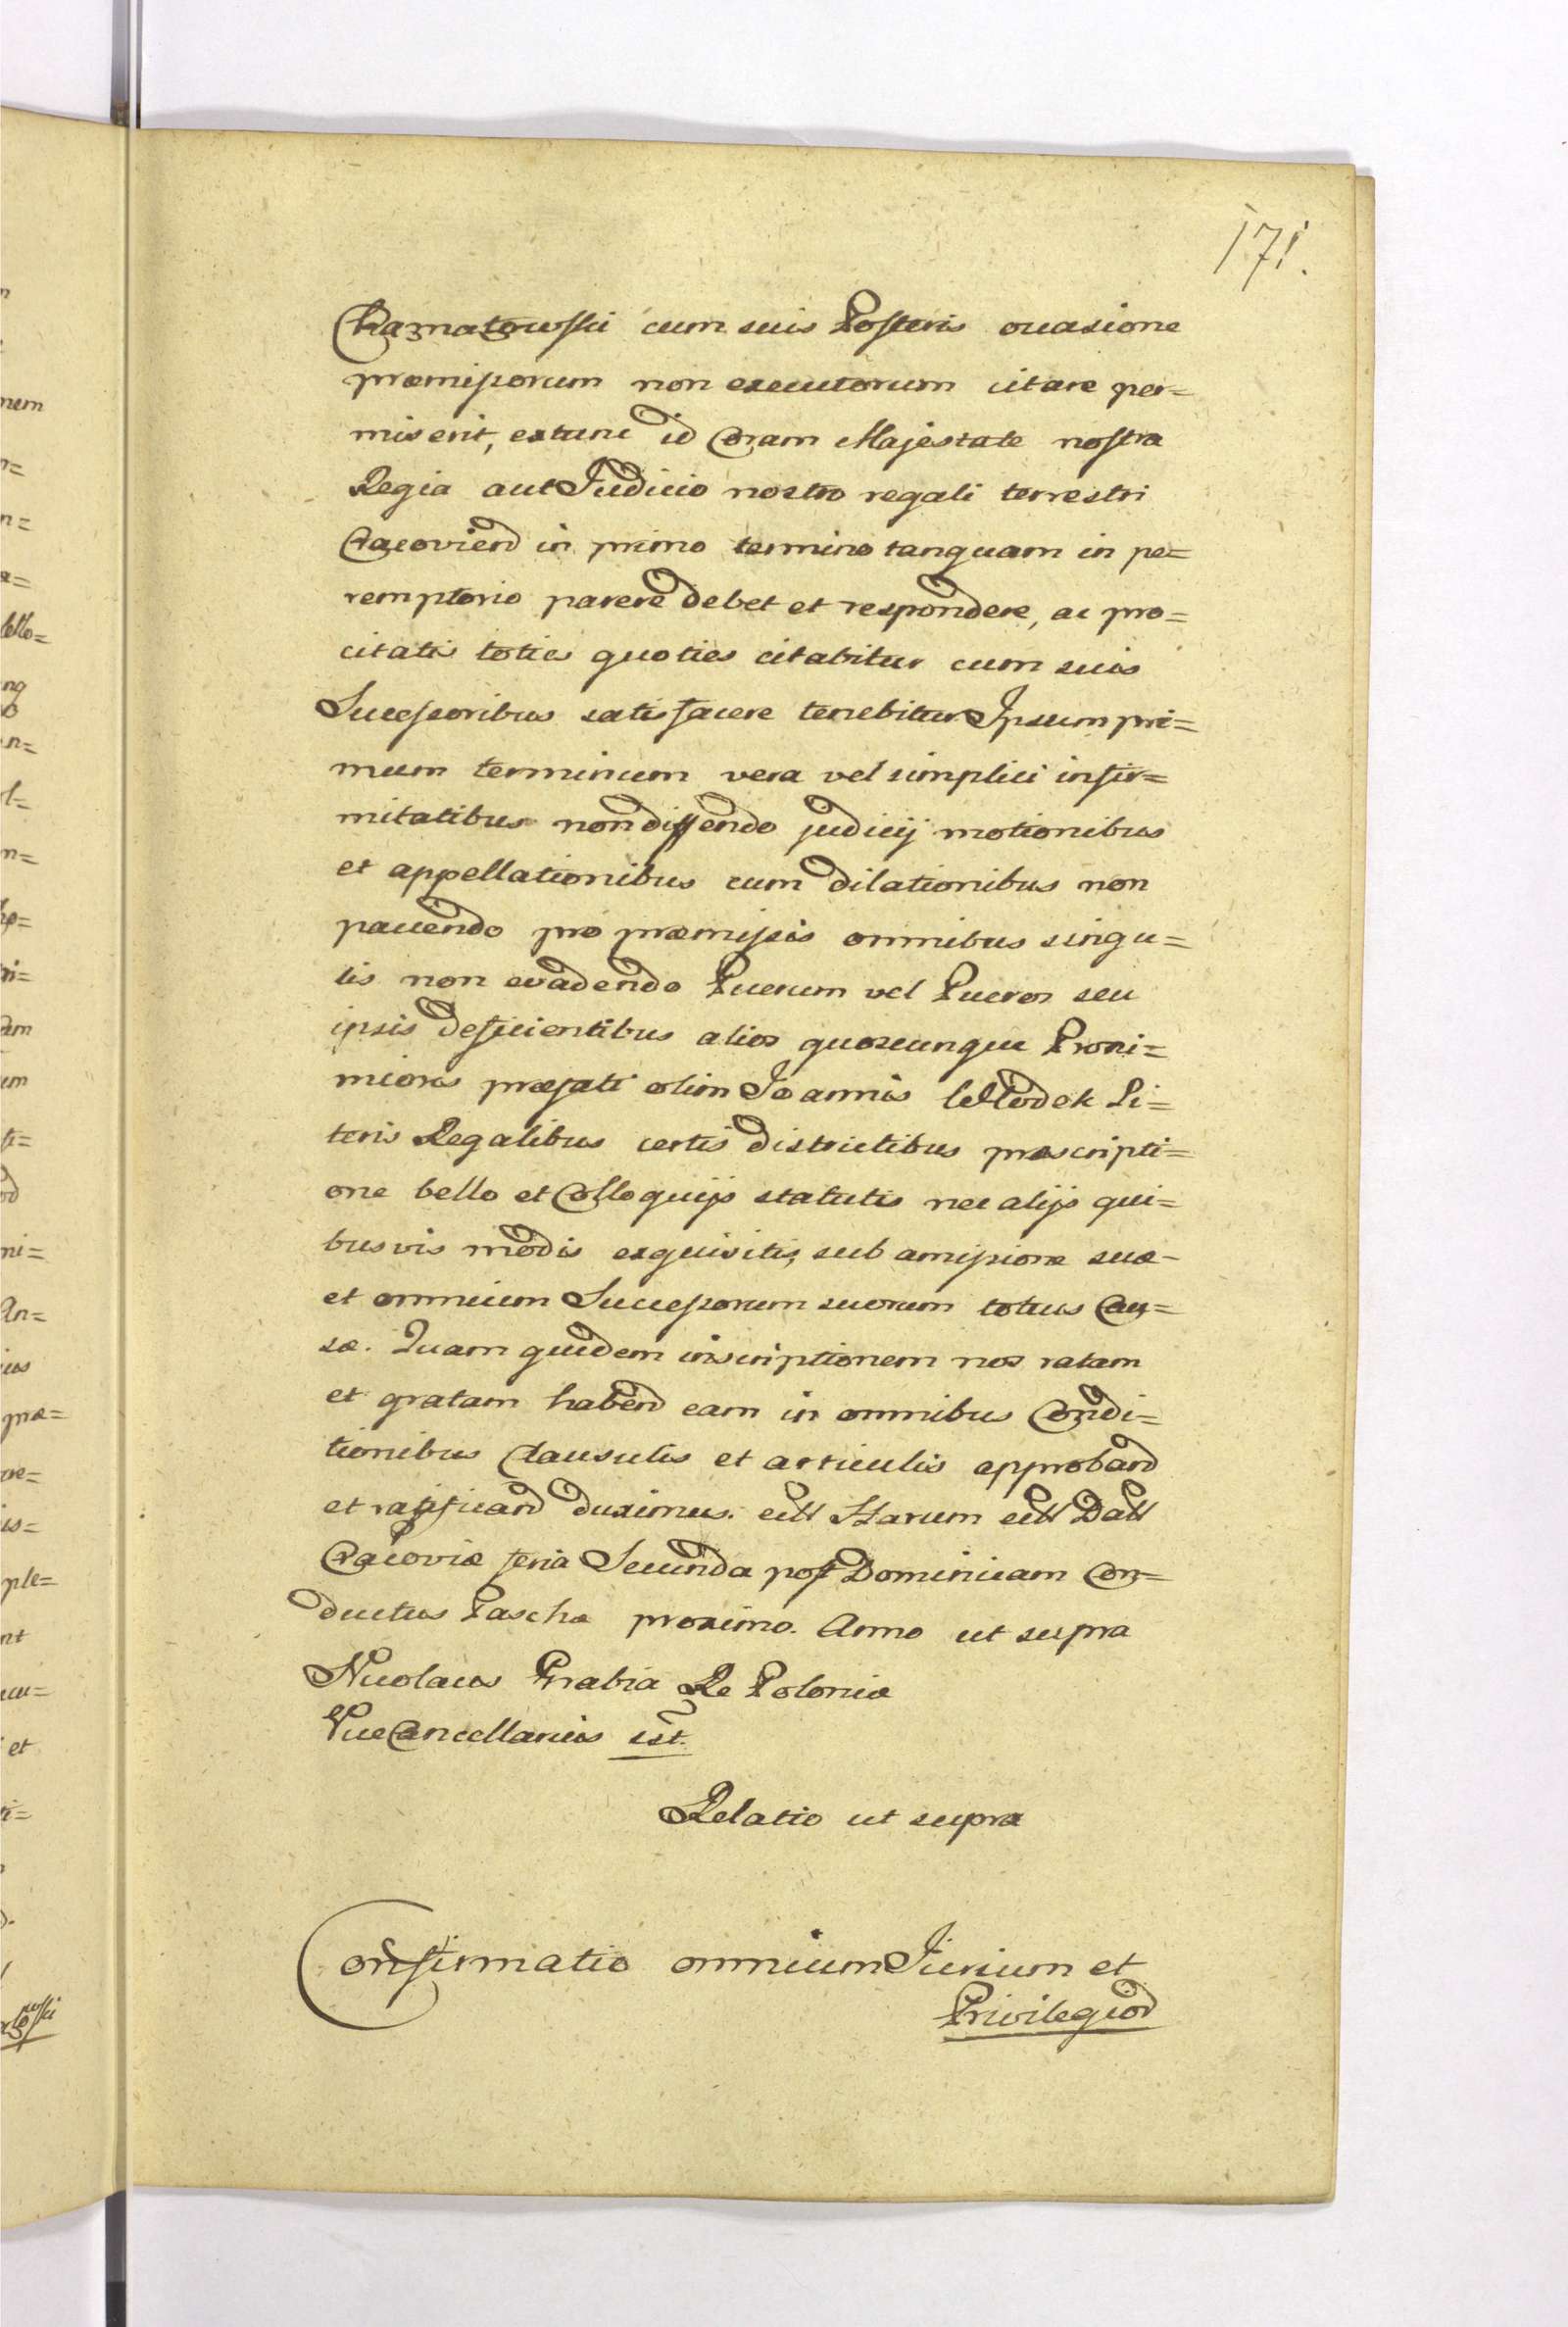 171.
Charmatowski cum suis Posteris occasione
præmissorum non executorum citare per=
miserit, extunc id Coram Majestate nostra
Regia aut Judicio nostro regali terrestri
Cracovien in primo termino tanquam in pe=
remptorio parere debet et respondere, ac pro=
citatis toties quoties citabitur cum suis
Successoribus satisfacere tenebitur Ipsum pri=
mum terminum vera vel simplici infir=
mitatibus non differendo judicij motionibus
et appellationibus cum dilationibus non
pavendo pro præmissis omnibus singu=
lis non evadendo Puerum vel Pueros seu
ipsis deficientibus alios quoscunque Proxi=
miores præfati olim Joannis Wlodek Li=
teris Regalibus certis districtibus præscripti=
one bello et Colloquijs statutis nec alijs qui=
busvis modis exquisitis, sub amissione suæ
et omnium Successorum suorum totius Cau=
sæ. Quam quidem inscriptionem nos ratam
et gratam haben eam in omnibus Condi=
tionibus Clausulis et articulis approband
et ratificand duximus. ett Harum ett Datt
Cracoviæ feria Secunda post Dominicam Con=
ductus Paschæ proximo. Anno ut supra
Nicolaus Poræbia Re Poloniæ
Vice Cancellarius sst.
Relatio ut supra
Confirmatio omnium Jurium et
Privilegior